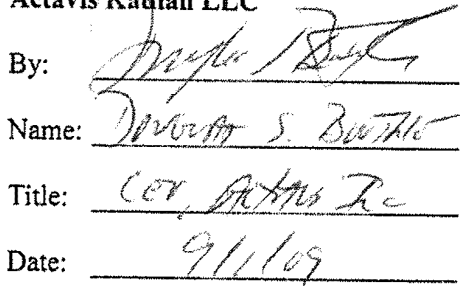 Actavis Kadian LLC
By:
Name: Douglas S. Boothe
Title: CEO, Actavis Inc
Date: 9/1/09